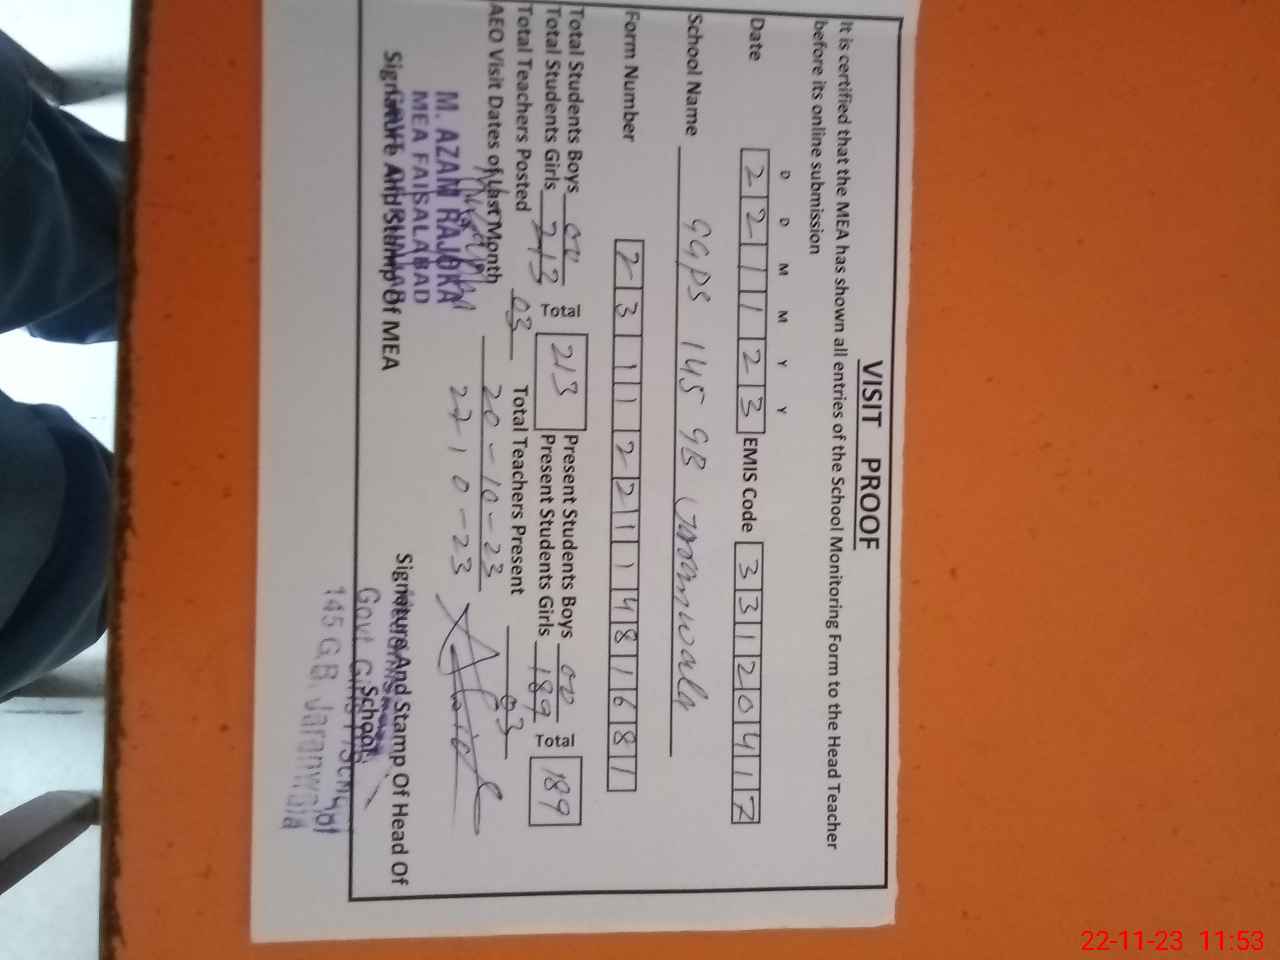 VISIT PROOF
It is certified that the MEA has shown all entries of the School Monitoring Form to the Head Teacher
before its online submission
D D M M Y Y
Date 2 2 1 1 2 3 EMIS Code 3 3 1 2 0 4 1 7
School Name GGPS 145 GB Jaranwala
Form Number 2 3 1 1 2 2 1 1 4 8 1 6 8 1
Total Students Boys 00 Present Students Boys 00
Total Students Girls 213 Total 213 Present Students Girls 189 Total 189
Total Teachers Posted 03 Total Teachers Present 03
AEO Visit Dates of Last Month 20-10-23
27-10-23
M. AZAM RAJOKA
MEA FAISALABAD
Signature And Stamp Of MEA
Signature And Stamp Of Head Of
School
Govt. Girls
145 G.B. Jaranwala
22-11-23 11:53